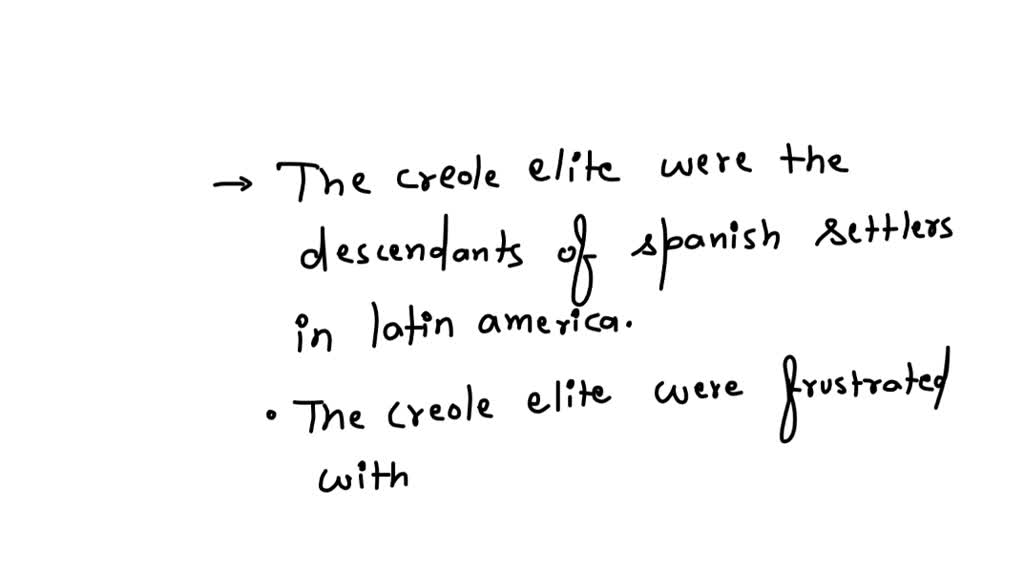 → The creole elite were the
descendants of spanish settlers
in latin america.
• The creole elite were frustrated
with